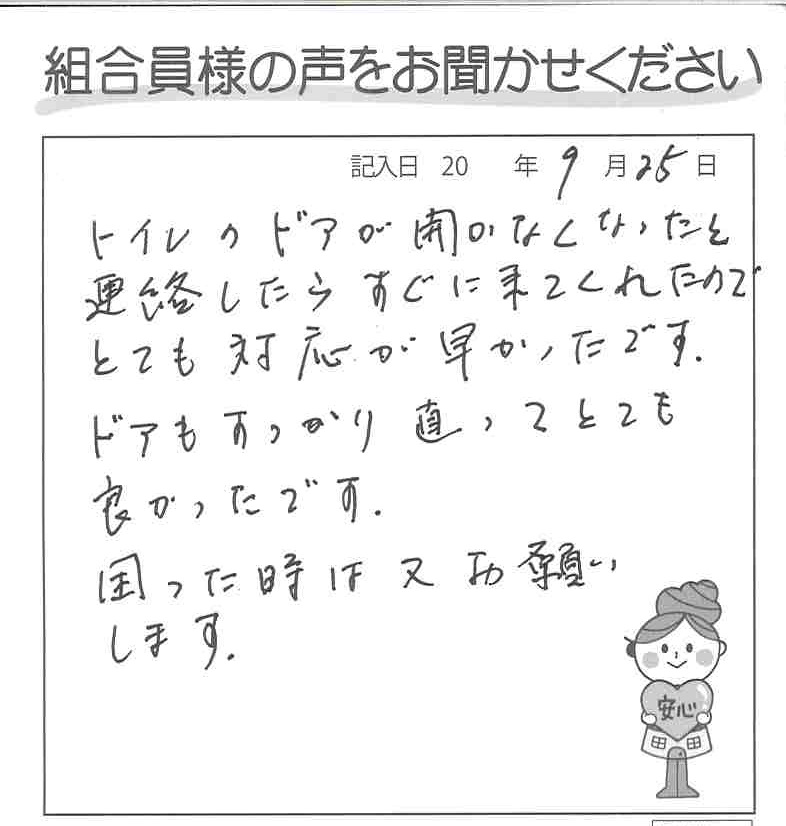 組合員様の声をお聞かせください
記入日 20 年 9 月 25 日
トイレのドアが開かなくなったと
連絡したらすぐに来てくれたので
とても対応が早かったです.
ドアもすっかり直ってとても
良かったです.
困った時は又お願い
します.
安心